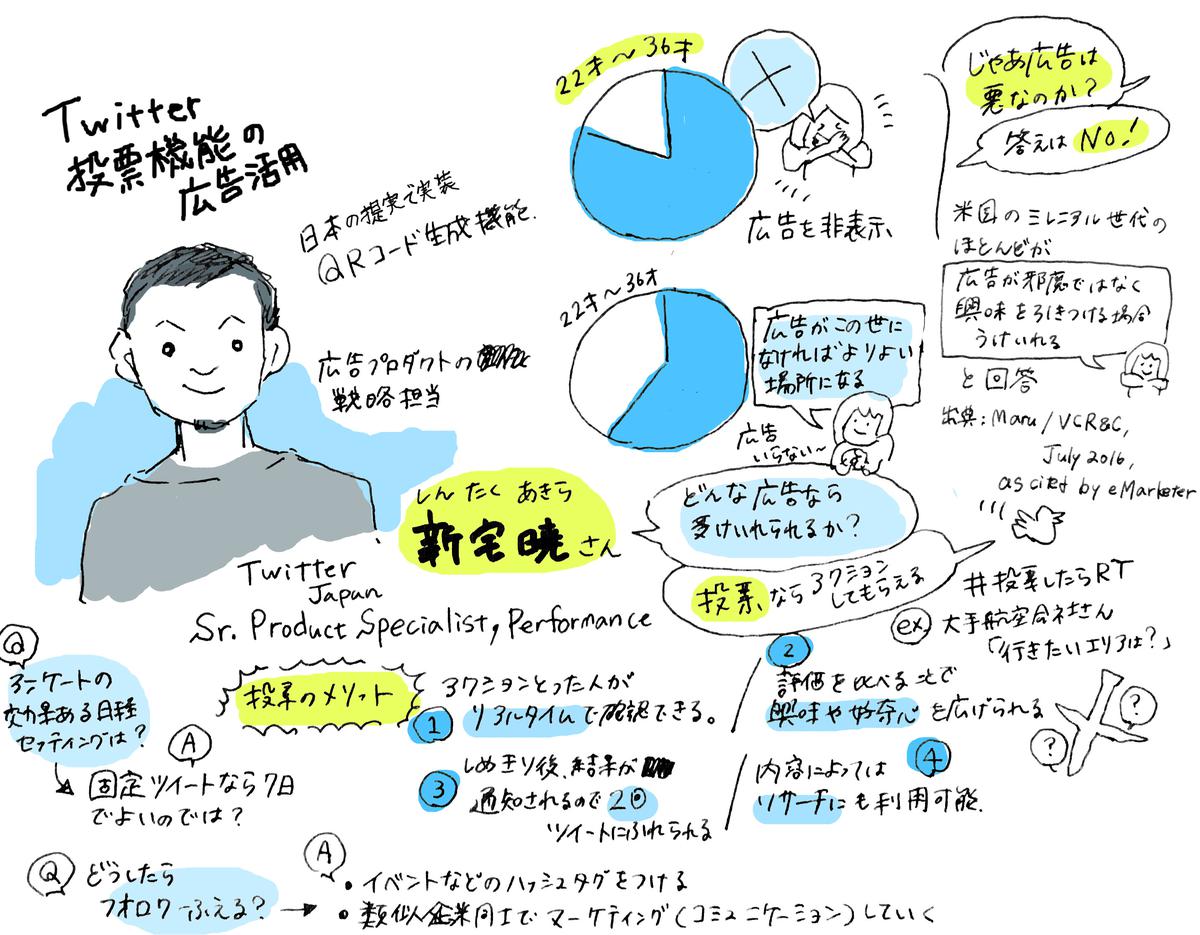 Twitter
投票機能の
広告活用
日本の提案で実装
QRコード生成機能.
広告プロダクトの
戦略担当
しんたく あきら
新宅暁さん
Twitter
Japan
Sr. Product Specialist, Performance
22才〜36才
広告を非表示
22才〜36才
広告がこの世に
なければよりよい
場所になる
広告
いらない〜
じゃあ広告は
悪なのか?
答えはNo!
米国のミレニアル世代の
ほとんどが
広告が邪魔ではなく
興味を引きつける場合
うけいれる
と回答
出典:Maru/VCR&C,
July 2016,
as cited by eMarketer
どんな広告なら
受けいれられるか?
投票ならアクション
してもらえる
#投票したらRT
ex. 大手航空会社さん
「行きたいエリアは?」
?
?
投票のメリット
1 アクションとった人が
リアルタイムで確認できる。
2 評価を比べることで
興味や好奇心を広げられる
3 しめきり後、結果が
通知されるので2回
ツイートにふれられる
4 内容によっては
リサーチにも利用可能.
Q
アンケートの
効果ある日程
セッティングは?
A
固定ツイートなら7日
でよいのでは?
Q どうしたら
フォロワーふえる?
A
・イベントなどのハッシュタグをつける
・類似企業同士でマーケティング(コミュニケーション)していく